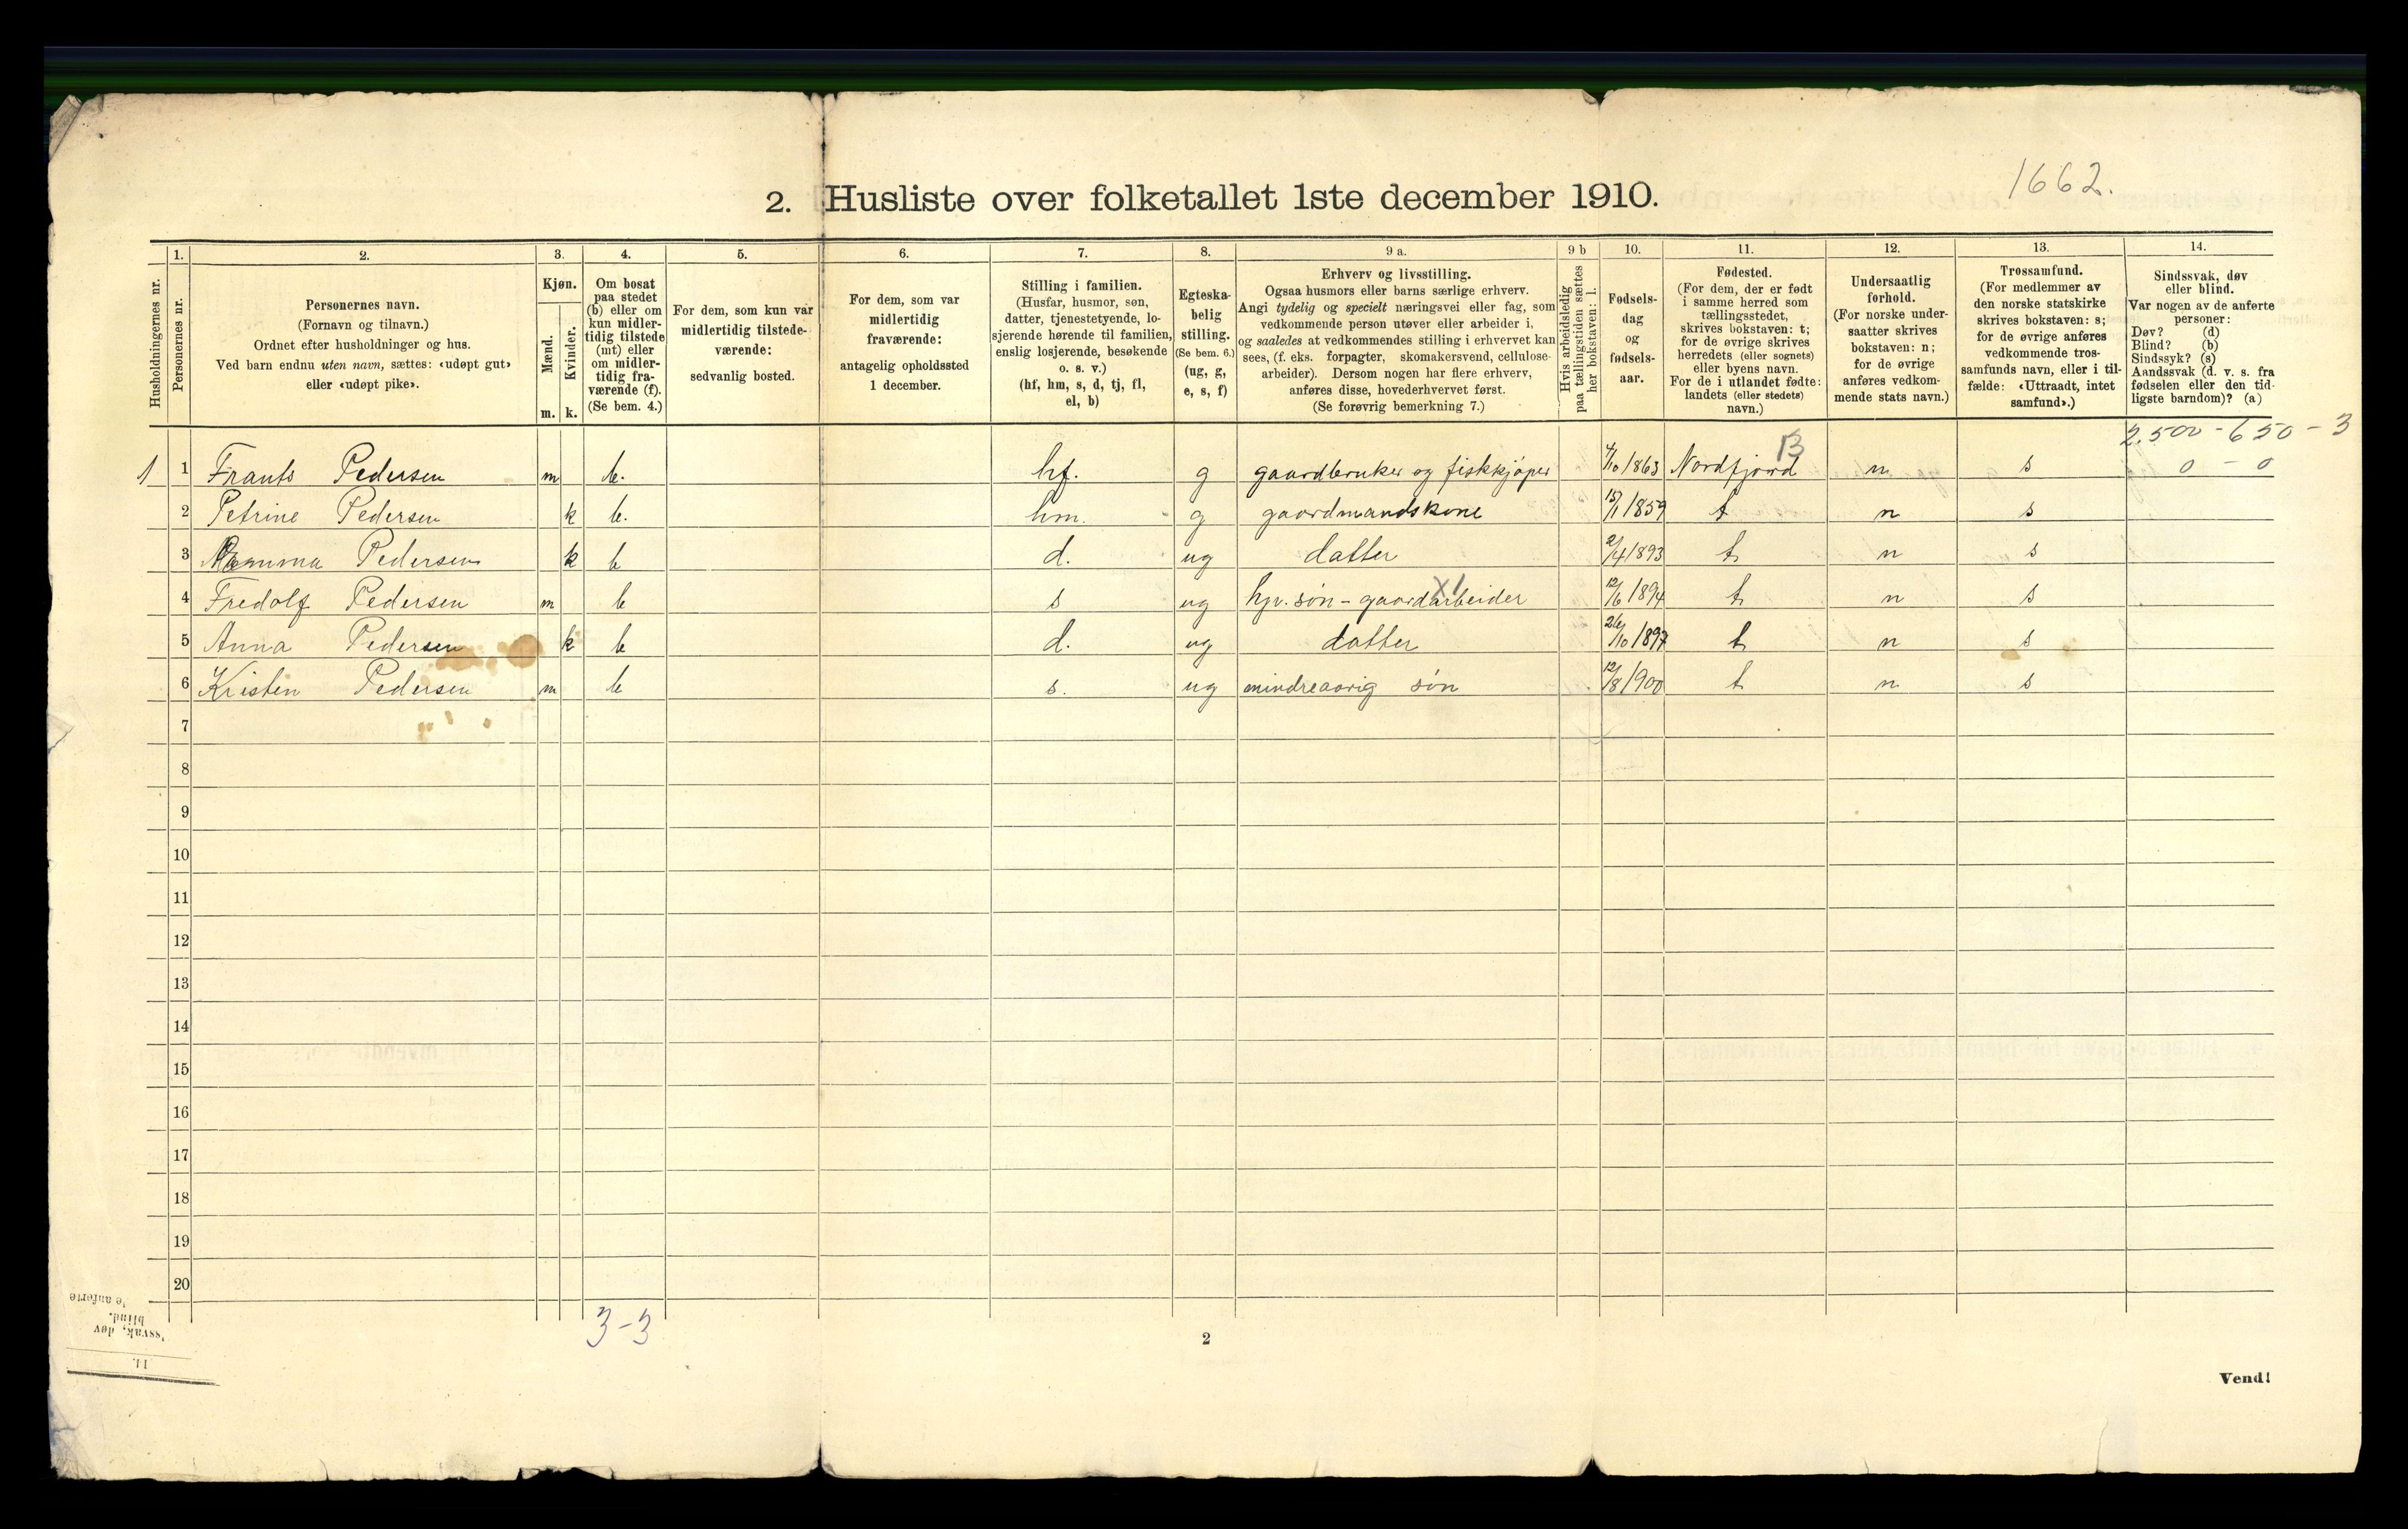 1662.
2. Husliste over folketallet 1ste december 1910.
Husholdningernes nr.
1.
Personernes nr.
2.
Personernes navn.
(Fornavn og tilnavn.)
Ordnet efter husholdninger og hus.
Ved barn endnu uten navn, sættes: «udøpt gut»
eller «udøpt pike».
3.
Kjøn.
Mænd.
Kvinder.
m. k.
4.
Om bosat
paa stedet
(b) eller om
kun midler-
tidig tilstede
(mt) eller
om midler-
tidig fra-
værende (f).
(Se bem. 4.)
5.
For dem, som kun var
midlertidig tilstede-
værende:
sedvanlig bosted.
6.
For dem, som var
midlertidig
fraværende:
antagelig opholdssted
1 december.
7.
Stilling i familien.
(Husfar, husmor, søn,
datter, tjenestetyende, lo-
sjerende hørende til familien,
enslig losjerende, besøkende
o. s. v.)
(hf, hm, s, d, tj, fl,
el, b)
8.
Egteska-
belig
stilling.
(Se bem. 6.)
(ug, g,
e, s, f)
9 a.
Erhverv og livsstilling.
Ogsaa husmors eller barns særlige erhverv.
Angi tydelig og specielt næringsvei eller fag, som
vedkommende person utøver eller arbeider i,
og saaledes at vedkommendes stilling i erhvervet kan
sees, (f. eks. forpagter, skomakersvend, cellulose-
arbeider). Dersom nogen har flere erhverv,
anføres disse, hovederhvervet først.
(Se forøvrig bemerkning 7.)
9 b
Hvis arbeidsledig
paa tællingstiden sættes
her bokstaven: l.
10.
Fødsels-
dag
og
fødsels-
aar.
11.
Fødested.
(For dem, der er født
i samme herred som
tællingsstedet,
skrives bokstaven: t;
for de øvrige skrives
herredets (eller sognets)
eller byens navn.
For de i utlandet fødte:
landets (eller stedets)
navn.)
12.
Undersaatlig
forhold.
(For norske under-
saatter skrives
bokstaven: n;
for de øvrige
anføres vedkom-
mende stats navn.)
13.
Trossamfund.
(For medlemmer av
den norske statskirke
skrives bokstaven: s;
for de øvrige anføres
vedkommende tros-
samfunds navn, eller i til-
fælde: «Uttraadt, intet
samfund».)
14.
Sindssvak, døv
eller blind.
Var nogen av de anførte
personer:
Døv? (d)
Blind? (b)
Sindssyk? (s)
Aandssvak (d. v. s. fra
fødselen eller den tid-
ligste barndom)? (a)
2.500 - 650 - 3
B
1 1 Frants Pedersen m b. hf. g gaardbruker og fiskkjøper 4/10 1863 Nordfjord n s 0 - 0
2 Petrine Pedersen k b. hm. g gaardmandskone 15/1 1859 t n s
3 Pedersen k b d. ug datter 2/4 1893 t n s
4 Fredolf Pedersen m b s ug hjv. søn - gaardarbeider 12/6 1894 t n s
5 Anna Pedersen k b d. ug datter 26/10 1897 t n s
6 Kristen Pedersen m b s. ug mindreaarig søn 12/8 1900 t n s
7
8
9
10
11
12
13
14
15
16
17
18
19
20
3-3
2
Vend!
14.
ssvak, døv
blind.
e anførte